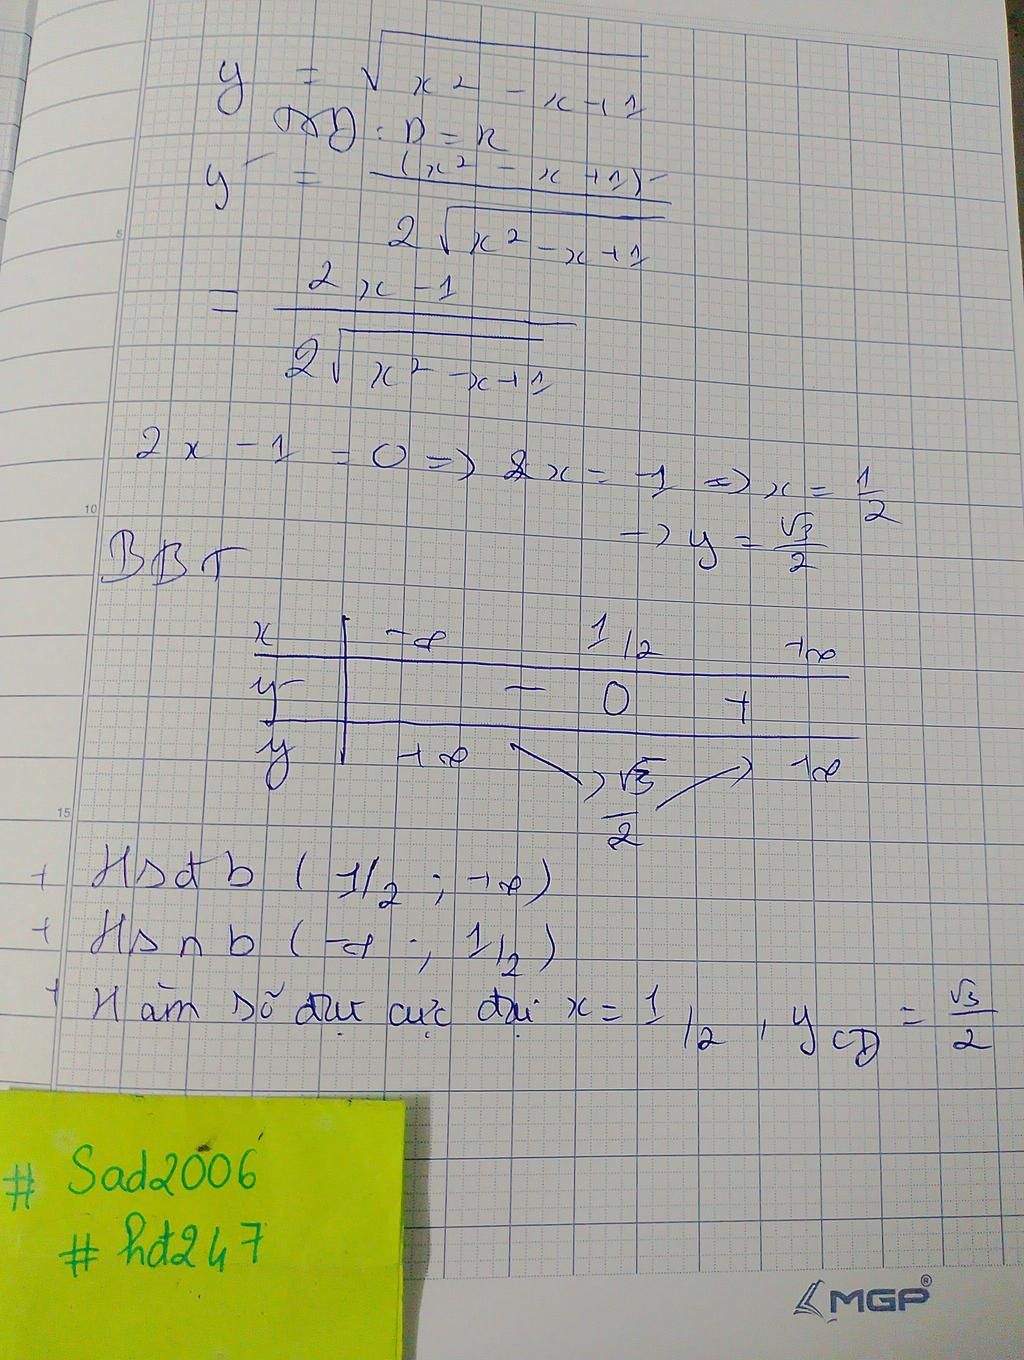 y = √(x² - x + 1)
TXD: D = R
y' = (x² - x + 1)' / 2√(x² - x + 1)
= 2x - 1 / 2√(x² - x + 1)
2x - 1 = 0 => 2x = -1 => x = 1/2
-> y = √3/2
BBT
x | -∞ 1/2 +∞
y' | - 0 +
y | +∞ ↘ √3/2 ↗ +∞
+ Hsđb (1/2 ; +∞)
+ Hsnb (-∞ ; 1/2)
+ Hàm số đạt cực đại x = 1/2, yCD = √3/2
# Sad2006
# hđ247
MGP®
5
10
15